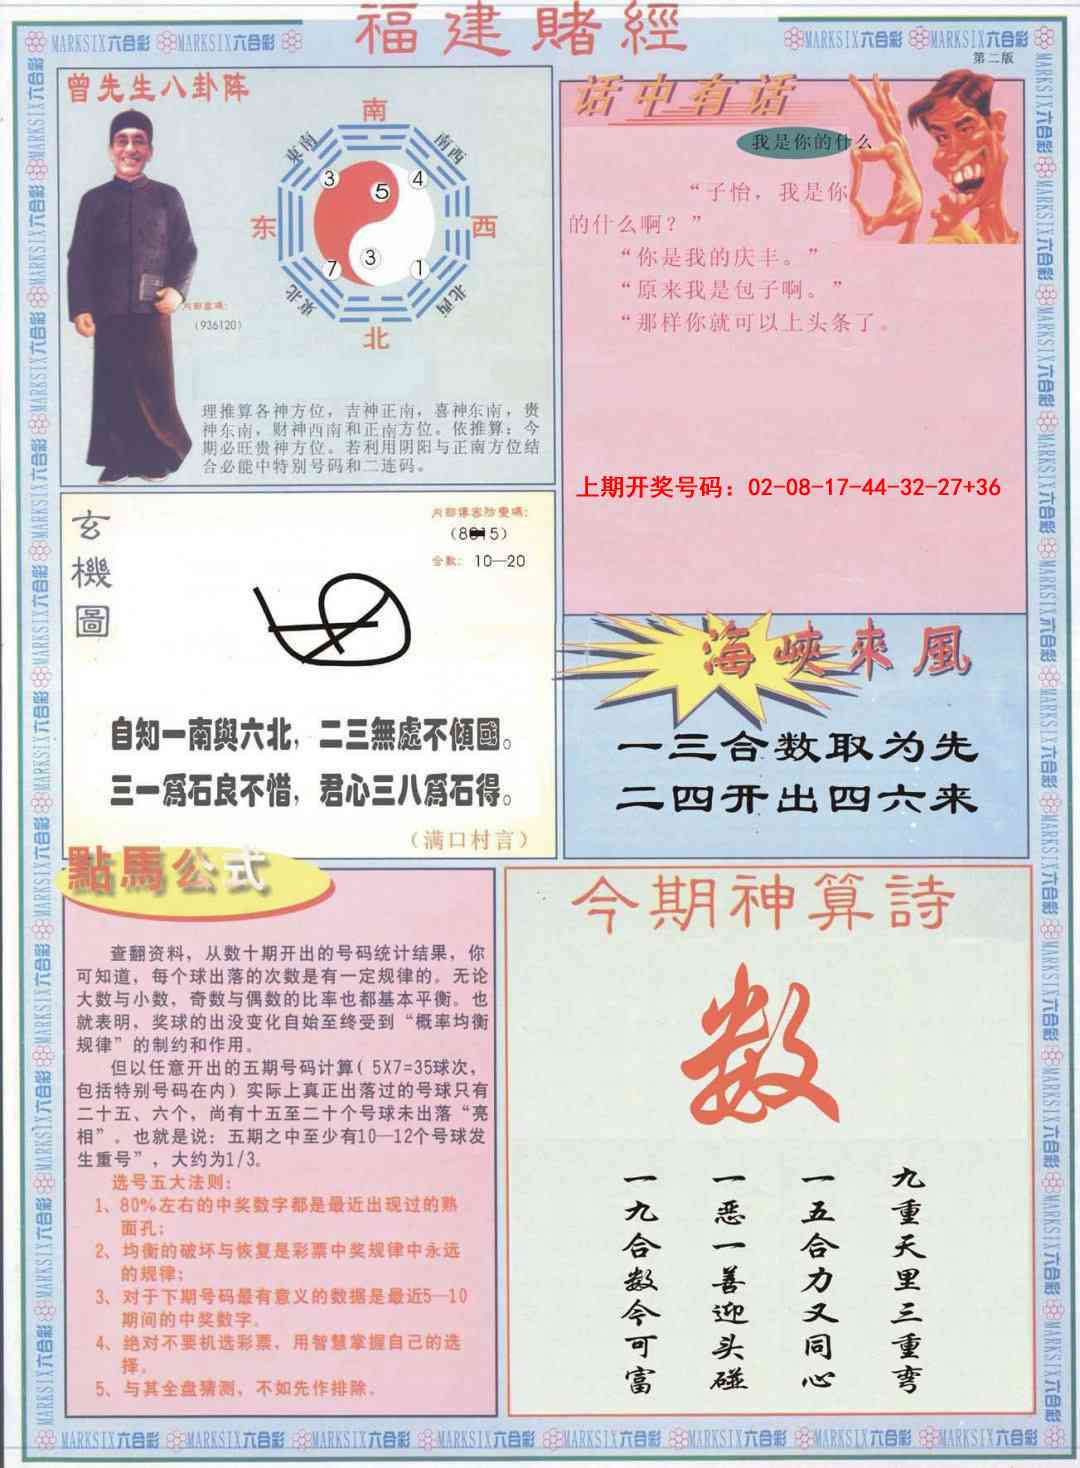 福建賭經
MARKSIX六合彩 MARKSIX六合彩
MARKSIX六合彩 MARKSIX六合彩
第二版
曾先生八卦阵
南
東南
南西
3
5
4
东
西
3
7
1
東北
北西
北
内部密碼:
(936120)
理推算各神方位，吉神正南，喜神东南，贵
神东南，财神西南和正南方位。依推算：今
期必旺贵神方位。若利用阴阳与正南方位结
合必能中特别号码和二连码。
话中有话
我是你的什么
“子怡，我是你
的什么啊？”
“你是我的庆丰。”
“原来我是包子啊。”
“那样你就可以上头条了。
上期开奖号码：02-08-17-44-32-27+36
玄機圖
合數: 10—20
自知一南與六北，二三無處不傾國。
三一爲石良不惜，君心三八爲石得。
（满口村言）
海峽來風
一三合数取为先
二四开出四六来
點馬公式
查翻资料，从数十期开出的号码统计结果，你
可知道，每个球出落的次数是有一定规律的。无论
大数与小数，奇数与偶数的比率也都基本平衡。也
就表明，奖球的出没变化自始至终受到“概率均衡
规律”的制约和作用。
但以任意开出的五期号码计算( 5X7=35球次，
包括特别号码在内）实际上真正出落过的号球只有
二十五、六个，尚有十五至二十个号球未出落“亮
相”。也就是说：五期之中至少有10—12个号球发
生重号”，大约为1/3。
选号五大法则：
1、80%左右的中奖数字都是最近出现过的熟
面孔；
2、均衡的破坏与恢复是彩票中奖规律中永远
的规律；
3、对于下期号码最有意义的数据是最近5—10
期间的中奖数字。
4、绝对不要机选彩票，用智慧掌握自己的选
择。
5、与其全盘猜测，不如先作排除。
今期神算詩
数
九重天里三重弯
一五合力又同心
一恶一善迎头碰
一九合数今可富
MARKSIX六合彩 MARKSIX六合彩 MARKSIX六合彩 MARKSIX六合彩 MARKSIX六合彩 MARKSIX六合彩 MARKSIX六合彩 MARKSIX六合彩